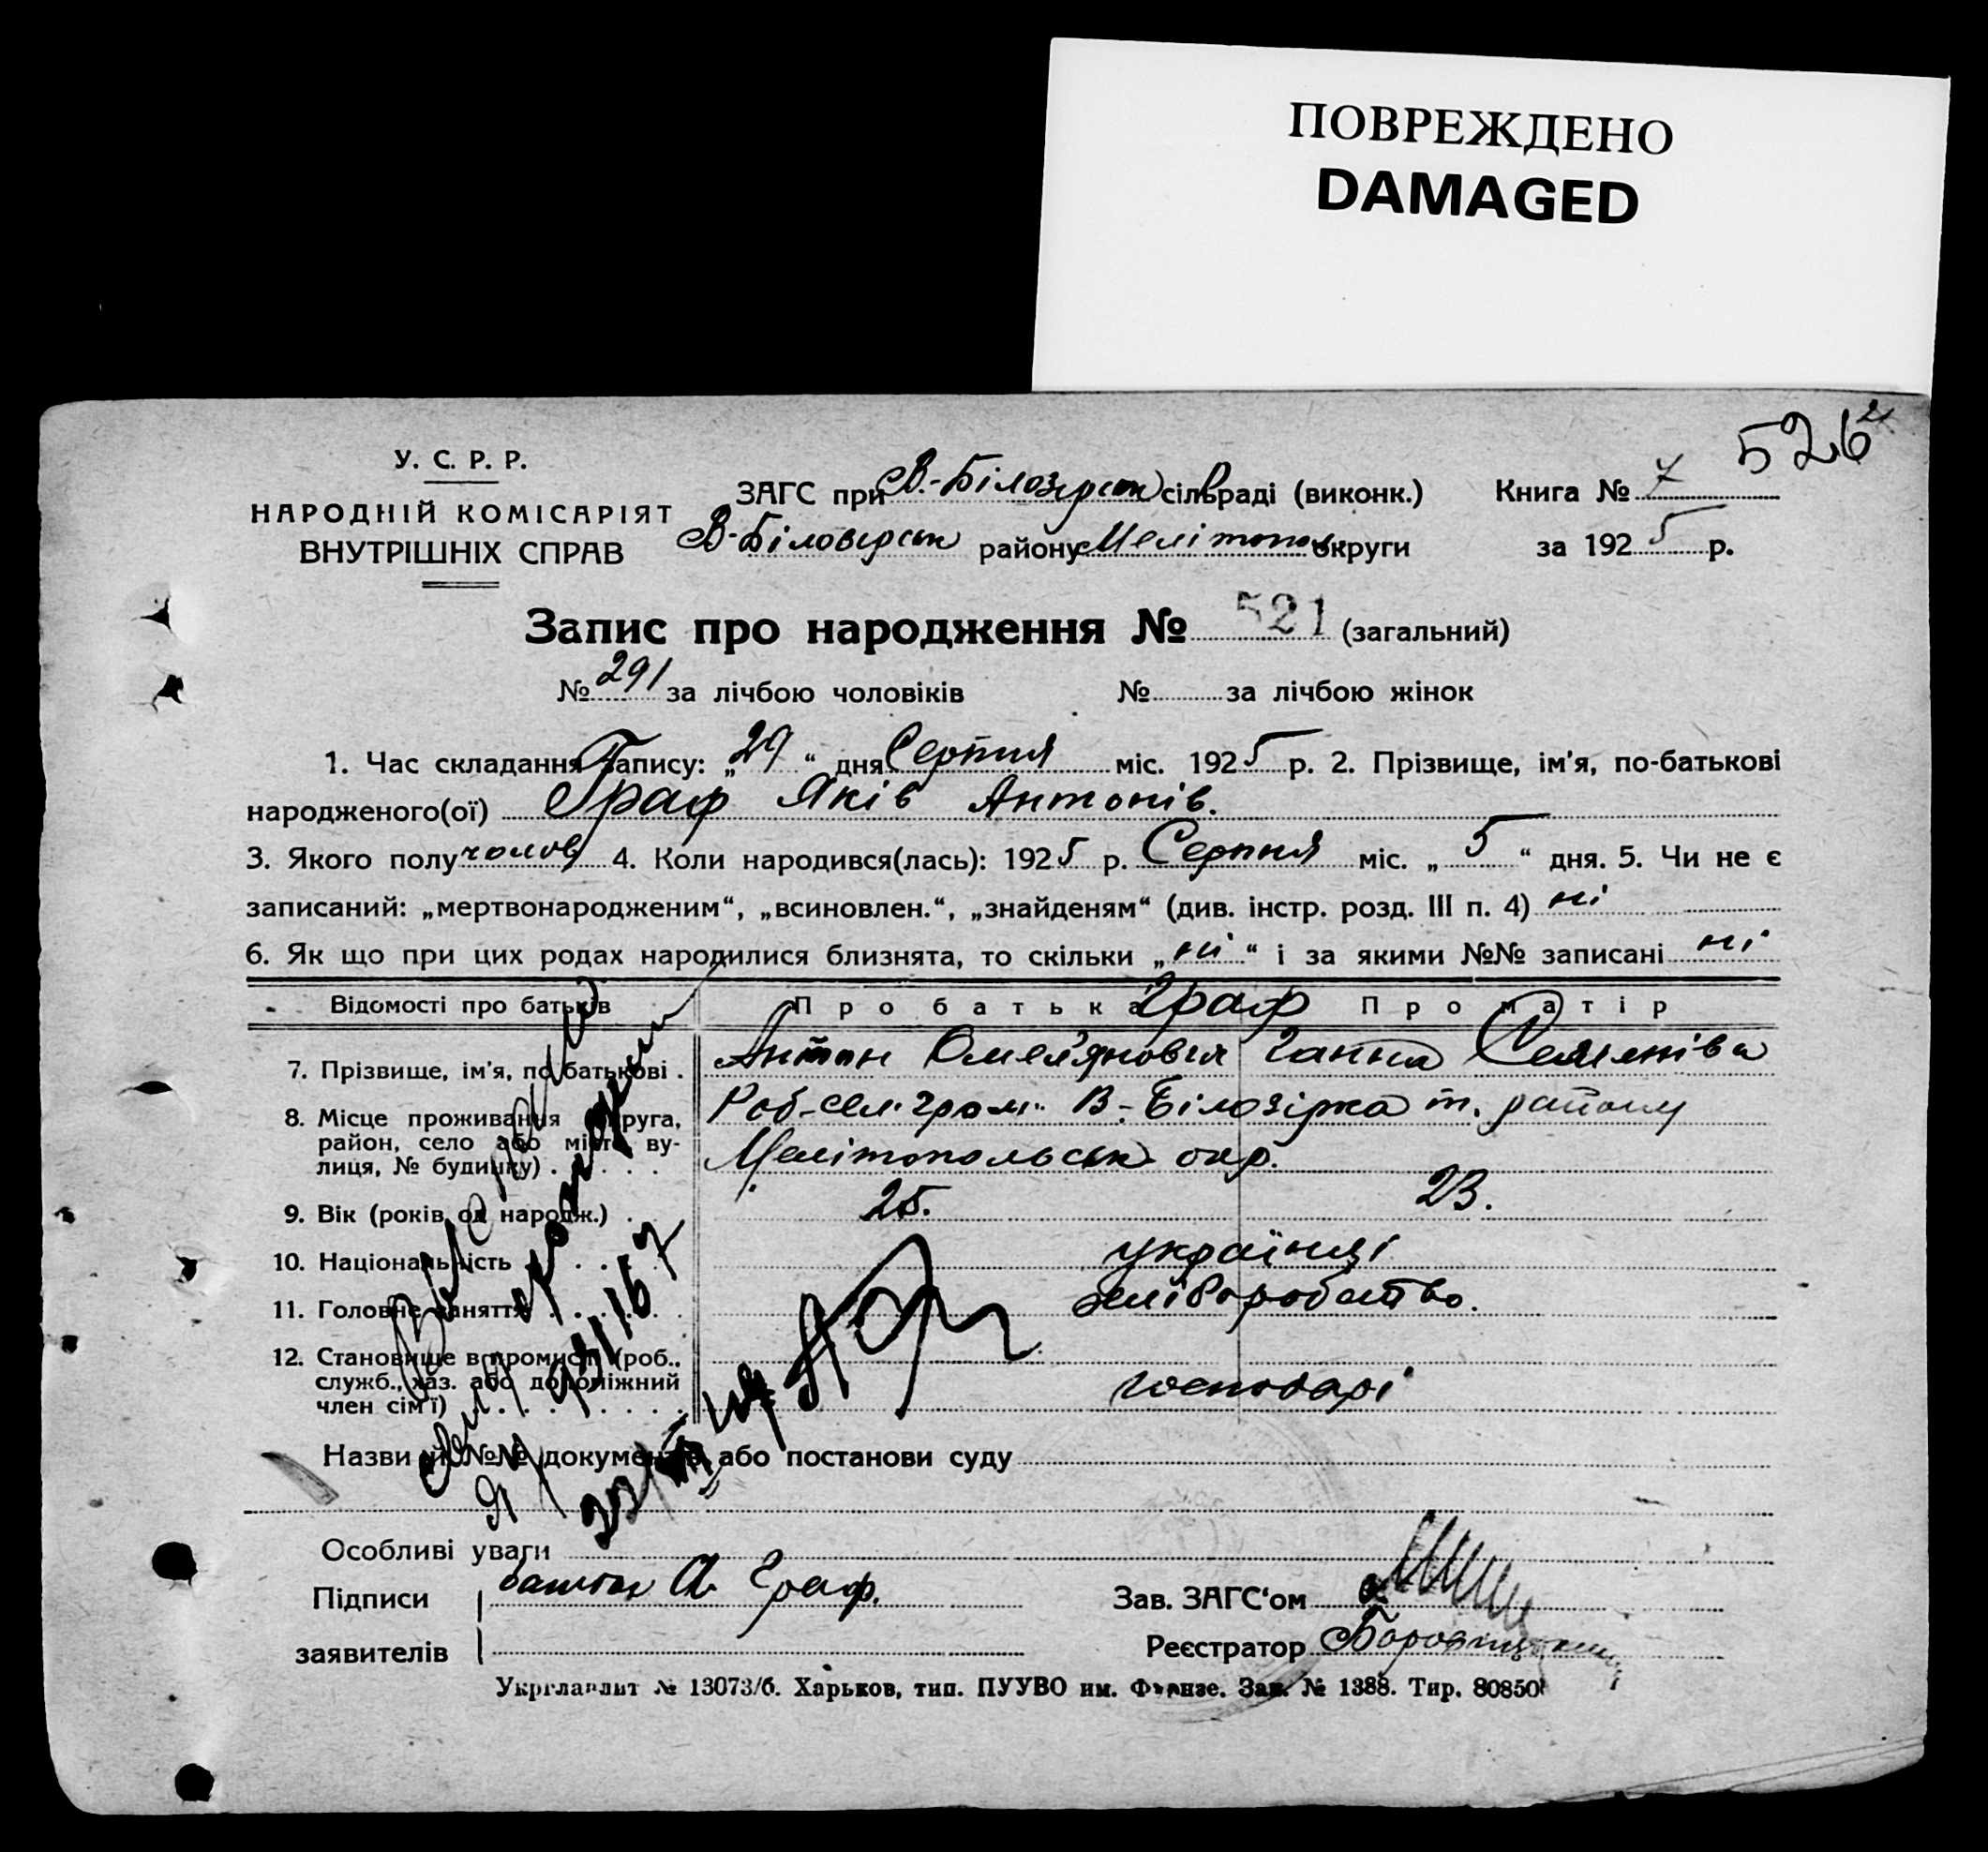 ПОВРЕЖДЕНО
DAMAGED
526
У. С. Р. Р.
НАРОДНІЙ КОМІСАРІЯТ
ВНУТРІШНІХ СПРАВ
ЗАГС при В.-Білозерськ сільраді (виконк.) Книга № 7
В-Білозерськ району Мелітопол округи за 1925 р.
Запис про народження № 521 (загальний)
№ 291 за лічбою чоловіків № за лічбою жінок
1. Час складання запису: „29“ дня Серпня міс. 1925 р. 2. Прізвище, ім'я, по-батькові
народженого(ої) Граф Яків Антонів.
3. Якого полу чолов 4. Коли народився(лась): 1925 р. Серпня міс. „5“ дня. 5. Чи не є
записаний: „мертвонародженим“, „всиновлен.“, „знайденям“ (див. інстр. розд. III п. 4) ні
6. Як що при цих родах народилися близнята, то скільки „ні“ і за якими №№ записані ні
Відомості про батьків Про батька Граф Про матір
7. Прізвище, ім'я, по батькові . Антон Омелянович Ганна Семенівна
8. Місце проживання округа, Роб-сел. гром. В-Білозірка т. району
район, село або місто, ву-
лиця, № будинку) Мелітопольськ окр.
9. Вік (років од народж.) 25. 23.
10. Національність українці
11. Головне заняття хліборобство.
12. Становище в промислі (роб.,
служб., хаз. або допоміжний господарі
член сім'ї)
Назви й №№ документів або постанови суду
Особливі уваги
Підписи батько А Граф. Зав. ЗАГС‘ом
заявителів Реєстратор
Укрглавліт № 13073/б. Харьков, тип. ПУУВО им. Фрунзе. Зак. № 1388. Тир. 80850